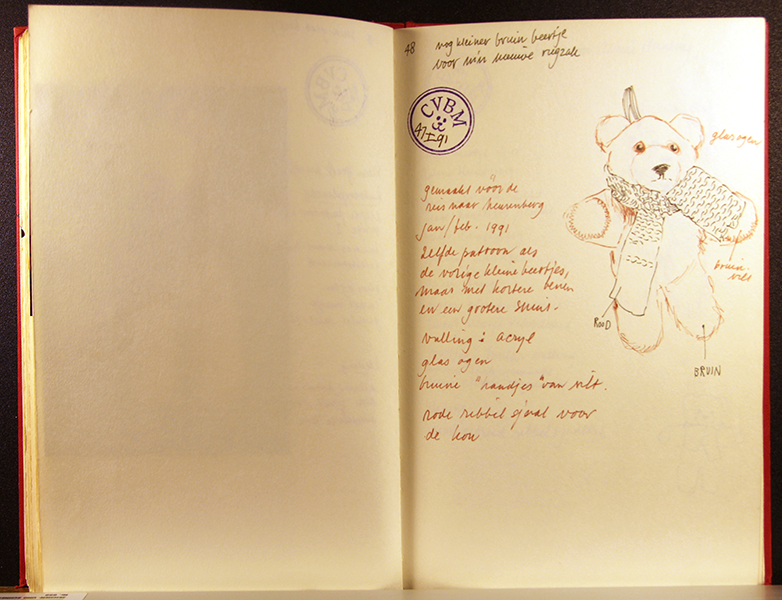 48 nog kleiner bruin beertje
voor m'n nieuwe rugzak
CVBM
47 I 91
glas ogen
gemaakt vóór de
reis naar Neurenberg
jan/feb. 1991
Zelfde patroon als
de vorige kleine beertjes,
maar met kortere benen
en een grotere snuit.
bruin
vilt
ROOD
vulling: acryl
glas ogen
BRUIN
bruine "handjes" van vilt.
rode ribbel sjaal voor
de kou